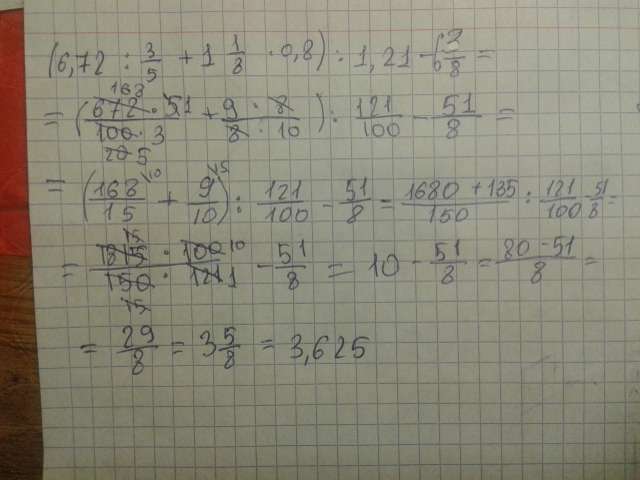 (6,72 : 3/5 + 1 1/8 · 0,8) : 1,21 - 6 3/8 =
= (672 · 5/100 · 3 + 9 · 8/8 · 10) : 121/100 - 51/8 =
= (168/15 + 9/10) : 121/100 - 51/8 = 1680 + 135/150 : 121/100 - 51/8 =
= 1815 · 100/150 · 121 - 51/8 = 10 - 51/8 = 80 - 51/8 =
= 29/8 = 3 5/8 = 3,625